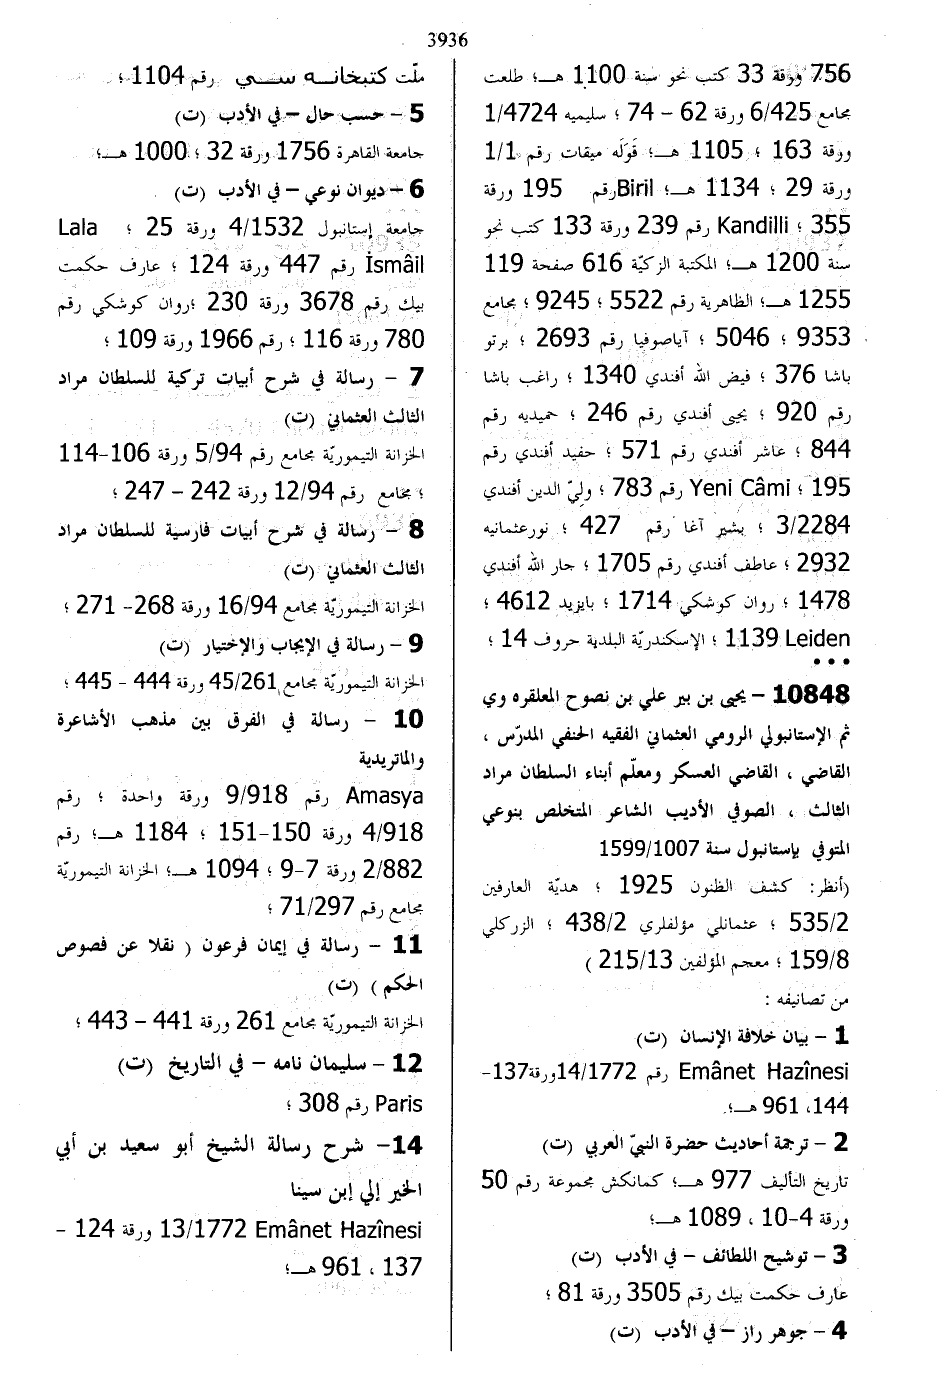 3936
756 ورقة 33 كتب نحو سنة 1100 هـ؛ طلعت
مجامع 6/425 ورقة 62 – 74 ؛ سليميه 1/4724
ورقة 163 ؛ 1105 هـ؛ قَوَله ميقات رقم 1/1
ورقة 29 ؛ 1134 هـ؛ Birilرقم 195 ورقة
355 ؛ Kandilli رقم 239 ورقة 133 كتب نحو
سنة 1200 هـ؛ المكتبة الزكيّة 616 صفحة 119
1255 هـ؛ الظاهرية رقم 5522 ؛ 9245 ؛ مجامع
9353 ؛ 5046 ؛ آياصوفيا رقم 2693 ؛ برتو
باشا 376 ؛ فيض الله أفندي 1340 ؛ راغب باشا
رقم 920 ؛ يحيى أفندي رقم 246 ؛ حميديه رقم
844 ؛ عاشر أفندي رقم 571 ؛ حفيد أفندي رقم
195 ؛ Yeni Câmi رقم 783 ؛ وليّ الدين أفندي
3/2284 ؛ بشير آغا رقم 427 ؛ نورعثمانيه
2932 ؛ عاطف أفندي رقم 1705 ؛ جار الله أفندي
1478 ؛ روان كوشكي 1714 ؛ بايزيد 4612 ؛
Leiden 1139 ؛ الإسكندريّة البلدية حروف 14 ؛
•••
10848 – يحيى بن بير علي بن نصوح المعلقره وي
ثم الإستانبولي الرومي العثماني الفقيه الحنفي المدرّس ،
القاضي ، القاضي العسكر ومعلّم أبناء السلطان مراد
الثالث ، الصوفي الأديب الشاعر المتخلص بنوعي
المتوفي بإستانبول سنة 1599/1007
(أنظر: كشف الظنون 1925 ؛ هديّة العارفين
535/2 ؛ عثمانلي مؤلفلري 438/2 ؛ الزركلي
159/8 ؛ معجم المؤلفين 215/13 )
من تصانيفه :
1 – بيان خلافة الإنسان (ت)
Emânet Hazînesi رقم 14/1772ورقة137–
144، 961 هـ؛.
2 – ترجمة أحاديث حضرة النبيّ العربي (ت)
تاريخ التأليف 977 هـ؛ كمانكش مجموعة رقم 50
ورقة 4–10 ، 1089 هـ؛
3 – توشيح اللطائف – في الأدب (ت)
عارف حكمت بيك رقم 3505 ورقة 81 ؛
4 – جوهر راز – في الأدب (ت)
ملّت كتبخانه سي رقم 1104 ؛
5 – حسب حال – في الأدب (ت)
جامعة القاهرة 1756 ورقة 32 ؛ 1000 هـ؛
6 – ديوان نوعي – في الأدب (ت)
جامعة إستانبول 4/1532 ورقة 25 ؛ Lala
İsmâil رقم 447 ورقة 124 ؛ عارف حكمت
بيك رقم 3678 ورقة 230 ؛روان كوشكي رقم
780 ورقة 116 ؛ رقم 1966 ورقة 109 ؛
7 – رسالة في شرح أبيات تركية للسلطان مراد
الثالث العثماني (ت)
الخزانة التيموريّة مجامع رقم 5/94 ورقة 106–114
؛ مجامع رقم 12/94 ورقة 242 – 247 ؛
8 – رسالة في شرح أبيات فارسية للسلطان مراد
الثالث العثماني (ت)
الخزانة التيموريّة مجامع 16/94 ورقة 268– 271 ؛
9 – رسالة في الإيجاب والإختيار (ت)
الخزانة التيموريّة مجامع 45/261 ورقة 444 – 445 ؛
10 – رسالة في الفرق بين مذهب الأشاعرة
والماتريدية
Amasya رقم 9/918 ورقة واحدة ؛ رقم
4/918 ورقة 150–151 ؛ 1184 هـ؛ رقم
2/882 ورقة 7–9 ؛ 1094 هـ؛ الخزانة التيموريّة
مجامع رقم 71/297 ؛
11 – رسالة في إيمان فرعون ( نقلا عن فصوص
الحكم ) (ت)
الخزانة التيموريّة مجامع 261 ورقة 441 – 443 ؛
12 – سليمان نامه – في التاريخ (ت)
Paris رقم 308 ؛
14– شرح رسالة الشيخ أبو سعيد بن أبي
الخير إلي إبن سينا
Emânet Hazînesi 13/1772 ورقة 124 –
137 ، 961 هـ؛